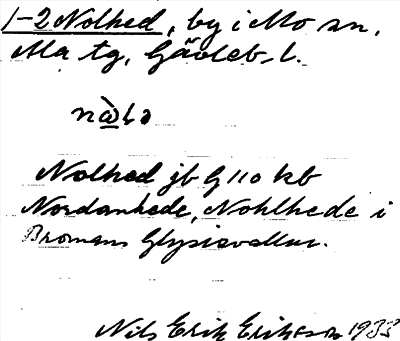 1-2 Nolhed, by i Mo sn,
Ma tg, Gävleb. l.
Nolhed jb G 110 kb
Nordanhede, Nohlhede i
Bromans Glysisvallur.
Nils Erik Eriksson 1933